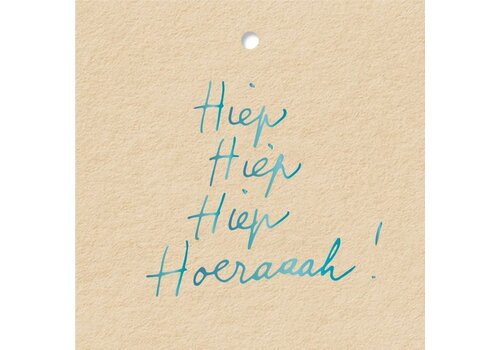 Hiep
Hiep
Hiep
Hoeraaah!